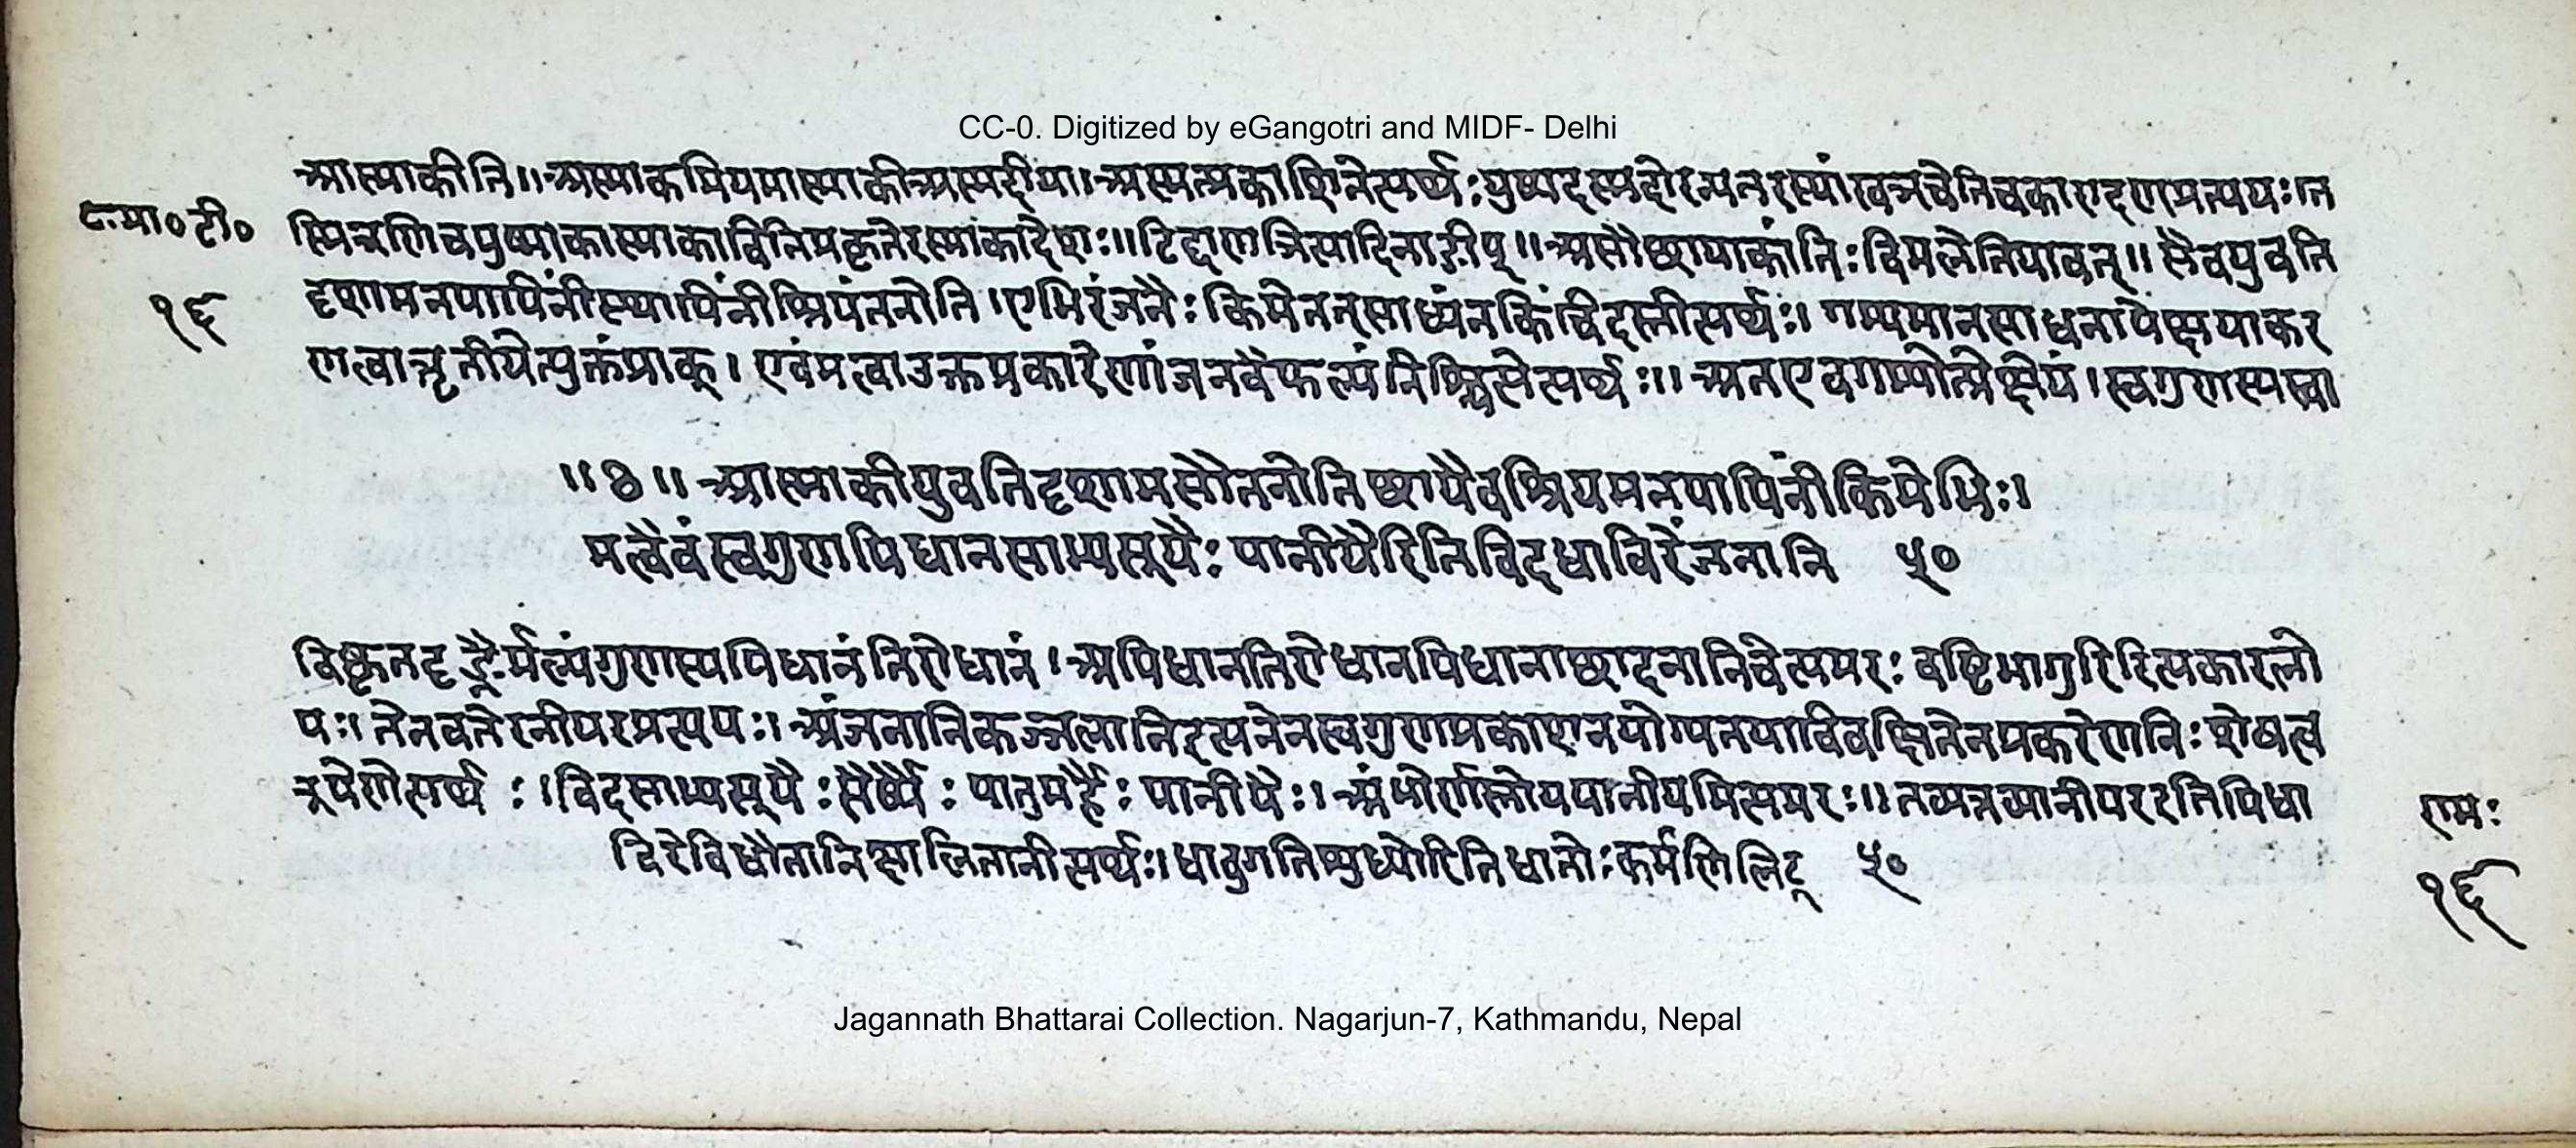 CC-0. Digitized by eGangotri and MIDF- Delhi
आस्माकीति॥अस्माकमियमास्माकीअस्मदीया।अस्मत्प्रकाशितेत्यर्थः युष्मदस्मदोरन्यतरस्यांखञ्चेतिचकारादणप्रत्ययः।त
८ मा० टी०
स्मिन्नणिचयुष्माकास्माकावितिप्रकृतेरस्माकादेशः॥टिड्ढाणञित्यादिनाङीप्॥असौछायाकांतिः विमलेतियावत्॥सैवयुवति
१६
दृशामनपायिनींस्थायिनींश्रियंतनोति।एभिरंजनैः किमेतत्साध्यंनकिंचिदस्तीत्यर्थः। गम्यमानसाधनापेक्षयाकर
णत्वात्तृतीयेत्युक्तंप्राक्। एवंमत्वाउक्तप्रकारेणांजनवैफल्यंनिश्चित्येत्यर्थः॥ अतएवगम्योत्प्रेक्षेयं।स्वगुणस्यस्वा
॥ॐ॥ आस्माकीयुवतिदृशामसौतनोति छायैवश्रियमनपायिनींकिमेभिः।
मत्वैवंस्वगुणपिधानसाभ्यसूयैः पानीयैरितिविदधाविरेंजनानि ५०
विष्कृतदृङ्नैर्मल्यंगुणस्यपिधानंतिरोधानं।अपिधानतिरोधानपिधानाछादनानिचेत्यमरः वष्टिभागुरिरित्यकारलो
पः। तेनवतेरनीयरप्रत्ययः। अंजनानिकज्जलानिइत्यनेनस्वगुणप्रकाशनयोग्यतयाविवक्षितेनप्रकरेणनिःशेषत्व
रूपेणेत्यर्थः।विदसाभ्यसूयैः सेर्ष्यैः पातुमर्हैः पानीयैः। अंभोर्णस्तोयपानीयमित्यमरः॥ तव्यत्तव्यानीयरइतिविधा
रामः
विरेविधौतानिक्षालितानीत्यर्थः। धावुगतिशुध्योरितिधातोः कर्मणिलिट् ५०
१६
Jagannath Bhattarai Collection. Nagarjun-7, Kathmandu, Nepal